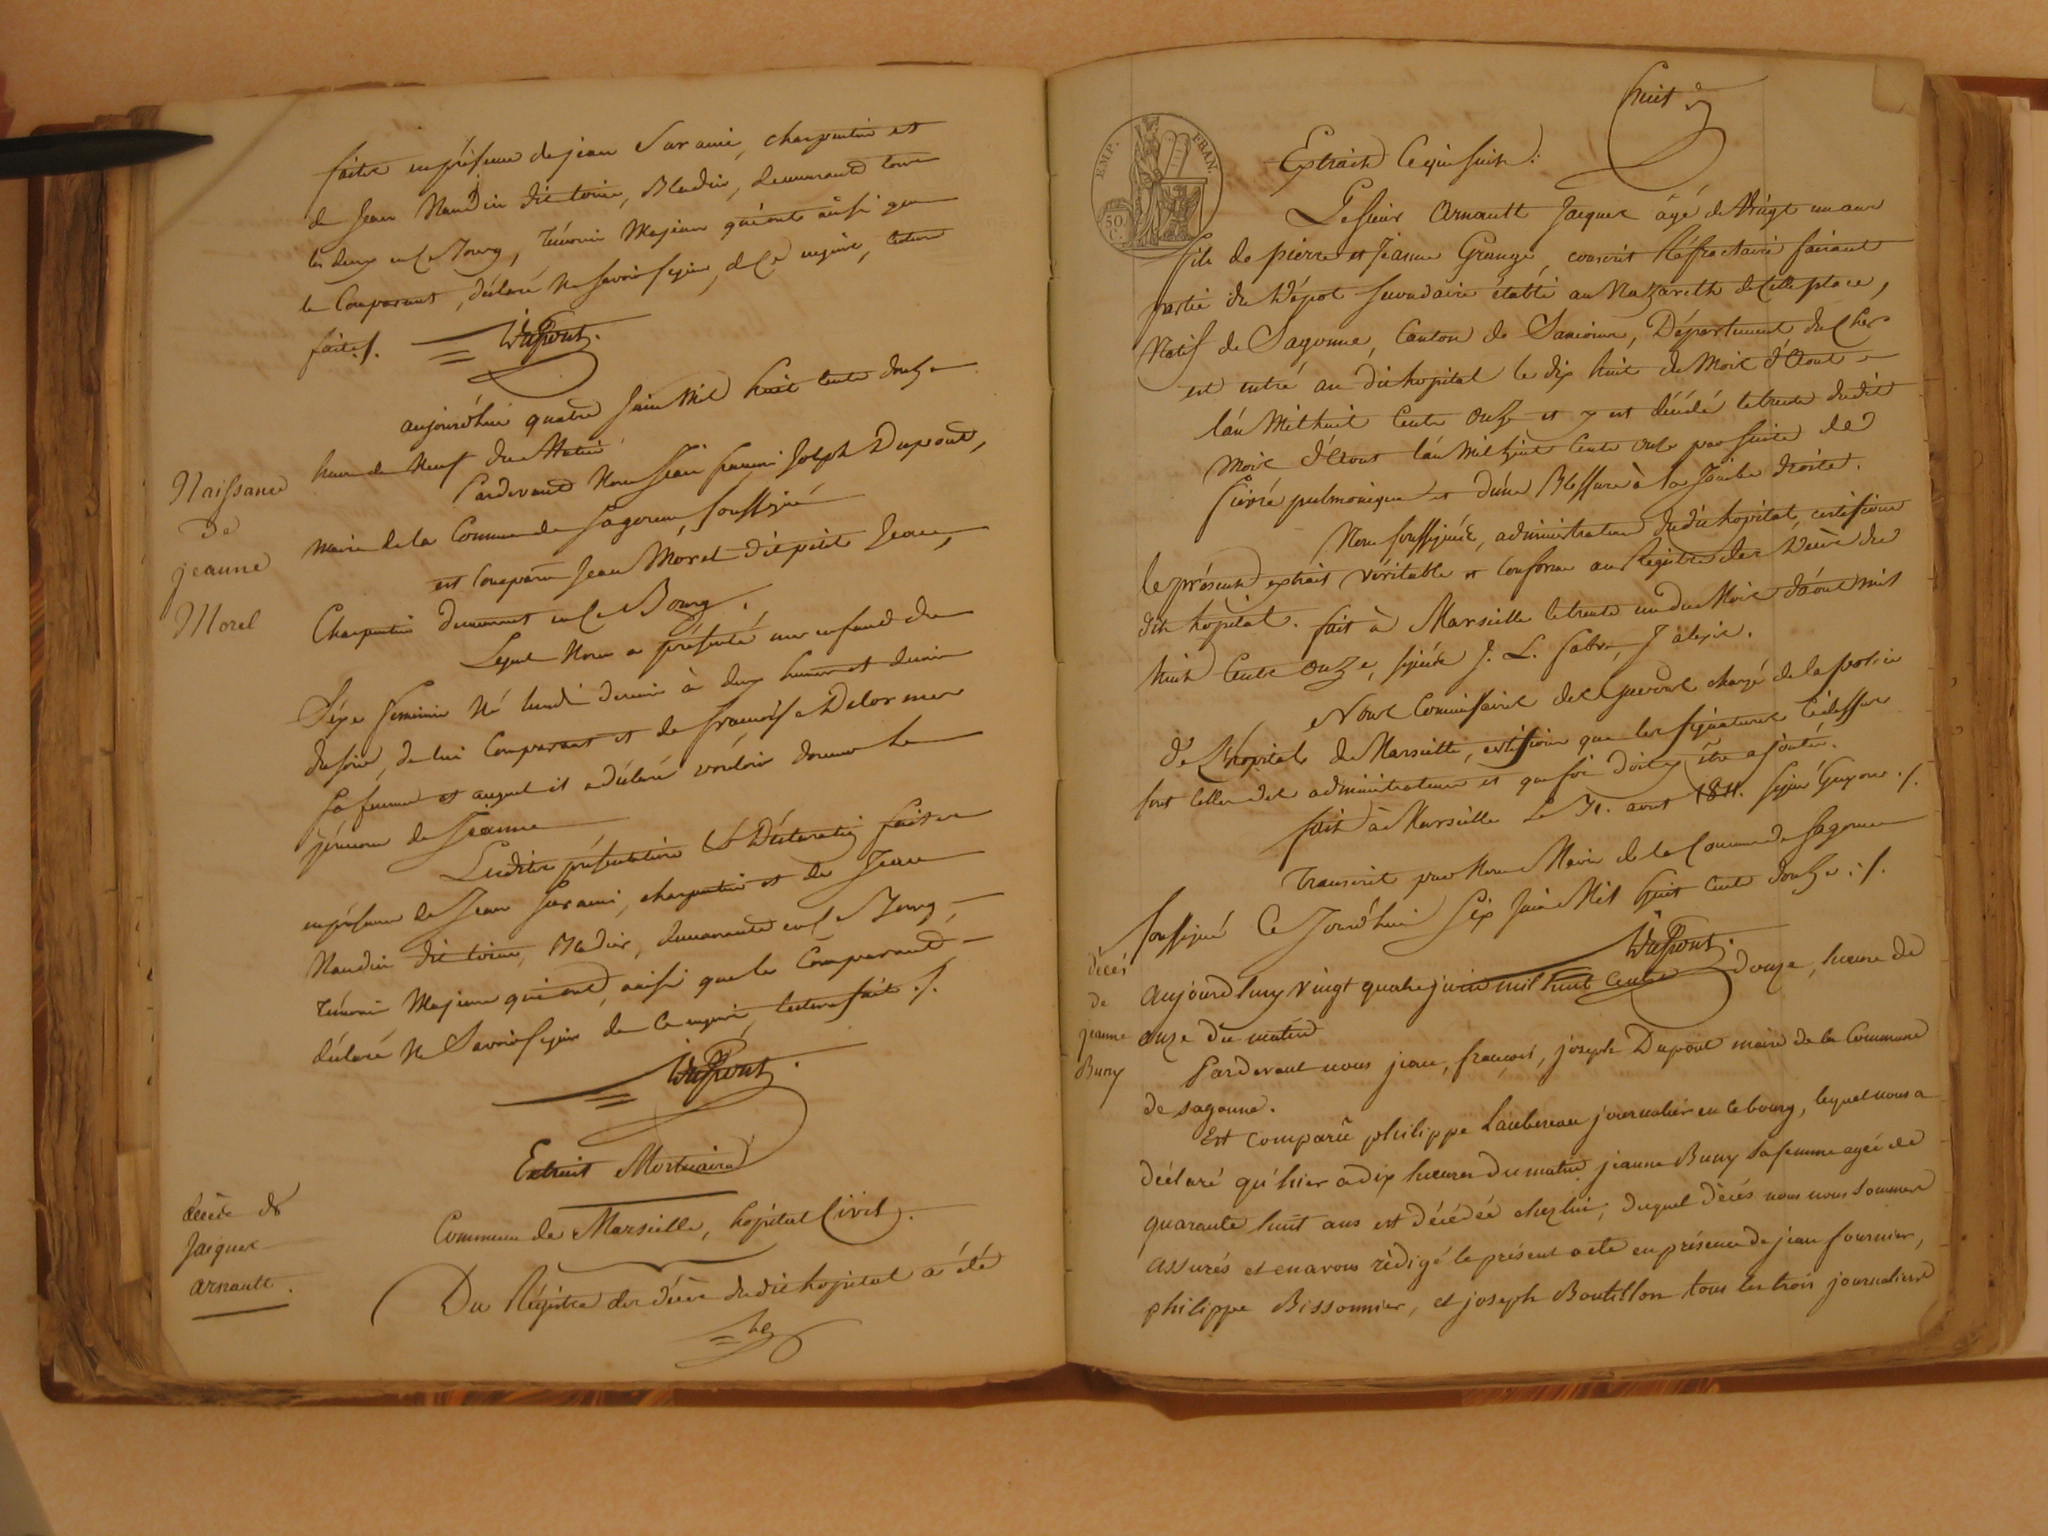 faite en présence de jean Surami, charpentier et
de Jean Naudin dit toine, Bladier, demeurant tous
les deux en ce Bourg, témoins Majeurs qui ont ainsi que
le Comparant, déclaré ne savoir signer, de ce enquis, lecture
faite ./.
Dupont.
aujourd'hui quatre Juin Mil huit Cents douze
heure de Neuf du Matin
Pardevant Nous Jean françois Joseph Dupont,
Maire de la Commune de Sagonne, soussigné
est Comparu Jean Morel dit petit Jean,
Charpentier demeurant en ce Bourg.
Lequel Nous a présenté un enfant du
Séxe feminin Né lundi dernier à deux heures
du soir, de lui Comparant et de françoise Delorme
sa femme et auquel il a déclaré vouloir donner le
prénom de Jeanne
Lesdites présentation & Déclaration faites
en présence de Jean Surami, charpentier et de Jean
Naudin dit toine, Bladier, demeurants en ce Bourg,
témoins Majeurs qui ont, ainsi que le Comparant,
déclaré ne Savoir signer de ce enquis, lecture faite ./.
Dupont.
Extrait Mortuaire
Commune de Marseille, hopital Civil.
Du Régistre des décès dudit hopital a été
Naissance
de
jeanne
Morel
décès de
Jacques
arnault.
huit
EMP. FRAN.
50 C.
Extrait Ce qui suit :
Le Sieur Arnault Jacques âgé de Vingt un ans
fils de pierre et Jeanne Grange, conscrit Réfractaire faisant
partie du Dépot secondaire établi au Nazareth de Cette place,
Natif de Sagonne, Canton de Sancoins, Département du Cher
est entré au dit hopital le dix huit du Mois d'Aout
l'an Mil huit Cents Onze et y est décédé le trente dudit
Mois d'Aout l'an Mil huit Cents onze par suite de
fievre pulmonique et d'une Blessure à la Jambe droite.
Nous soussignés, administrateurs dudit hopital, certifions
le présent extrait véritable et conforme au Registre des Décès du
dit hopital. fait à Marseille le trente un du Mois d'aout mil
huit Cents Onze, signés J. L. fabre, J alexis.
Nous Commissaire des guerres chargé de la police
de l'hopital de Marseille, certifions que les signatures Cidessus
sont Celles des administrateurs et que foi doit y être ajoutée.
fait à Marseille Le 31. aout 1811. signé Guyon ./.
Transcrit par Nous Maire de la Commune de Sagonne
soussigné Ce Jourd'hui Six Juin Mil huit Cents douze ./.
Dupont.
aujourd'huy vingt quatre juin mil huit cents douze, heure de
onze du matin
Pardevant nous jean, françois, joseph Dupont maire de la Commune
de sagonne.
Est comparû philippe Laubereau journalier en ce bourg, lequel nous a
déclaré qu'hier a dix heures du matin jeanne Buny sa femme agée de
quarante huit ans est décédée chez lui, duquel décés nous nous sommes
assurés et en avons rédigé le présent acte en présence de jean fournier,
philippe Bissonnier, et joseph Boutillon tous les trois journaliers
décés
de
jeanne
Buny